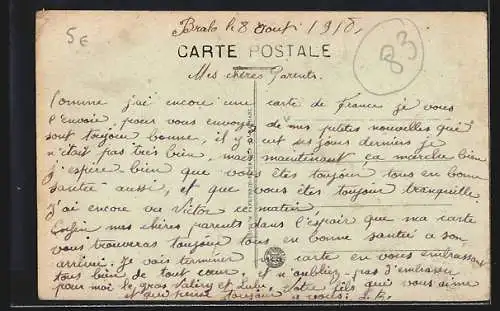 5€
83
Bralo le 8 Aout 1918,
CARTE POSTALE
Mes chères Parents.
Comme j'ai encore une carte de France je vous
l'envoie pour vous envoyé de mes petites nouvelles qui
sont toujour bonne, il y eut ses jours derniers je
n'était pas très bien, mais maintenant ça marche bien
j'espère bien que vous êtes toujour tous en bonne
santée aussi, et que vous êtes toujour tranquille.
J'ai encore vu Victor ce matin.
Enfin mes chères parents dans l'éspoir que ma carte
vous trouveras toujour tous en bonne santée a son
arrivée. je vais terminer ma carte en vous embrassant
tous bien de tout cœur, et n'oubliez-pas d'embrasser
pour moi le gros Valéry et Lulu, Votre fils qui vous aime
et qui pense toujour a vous: